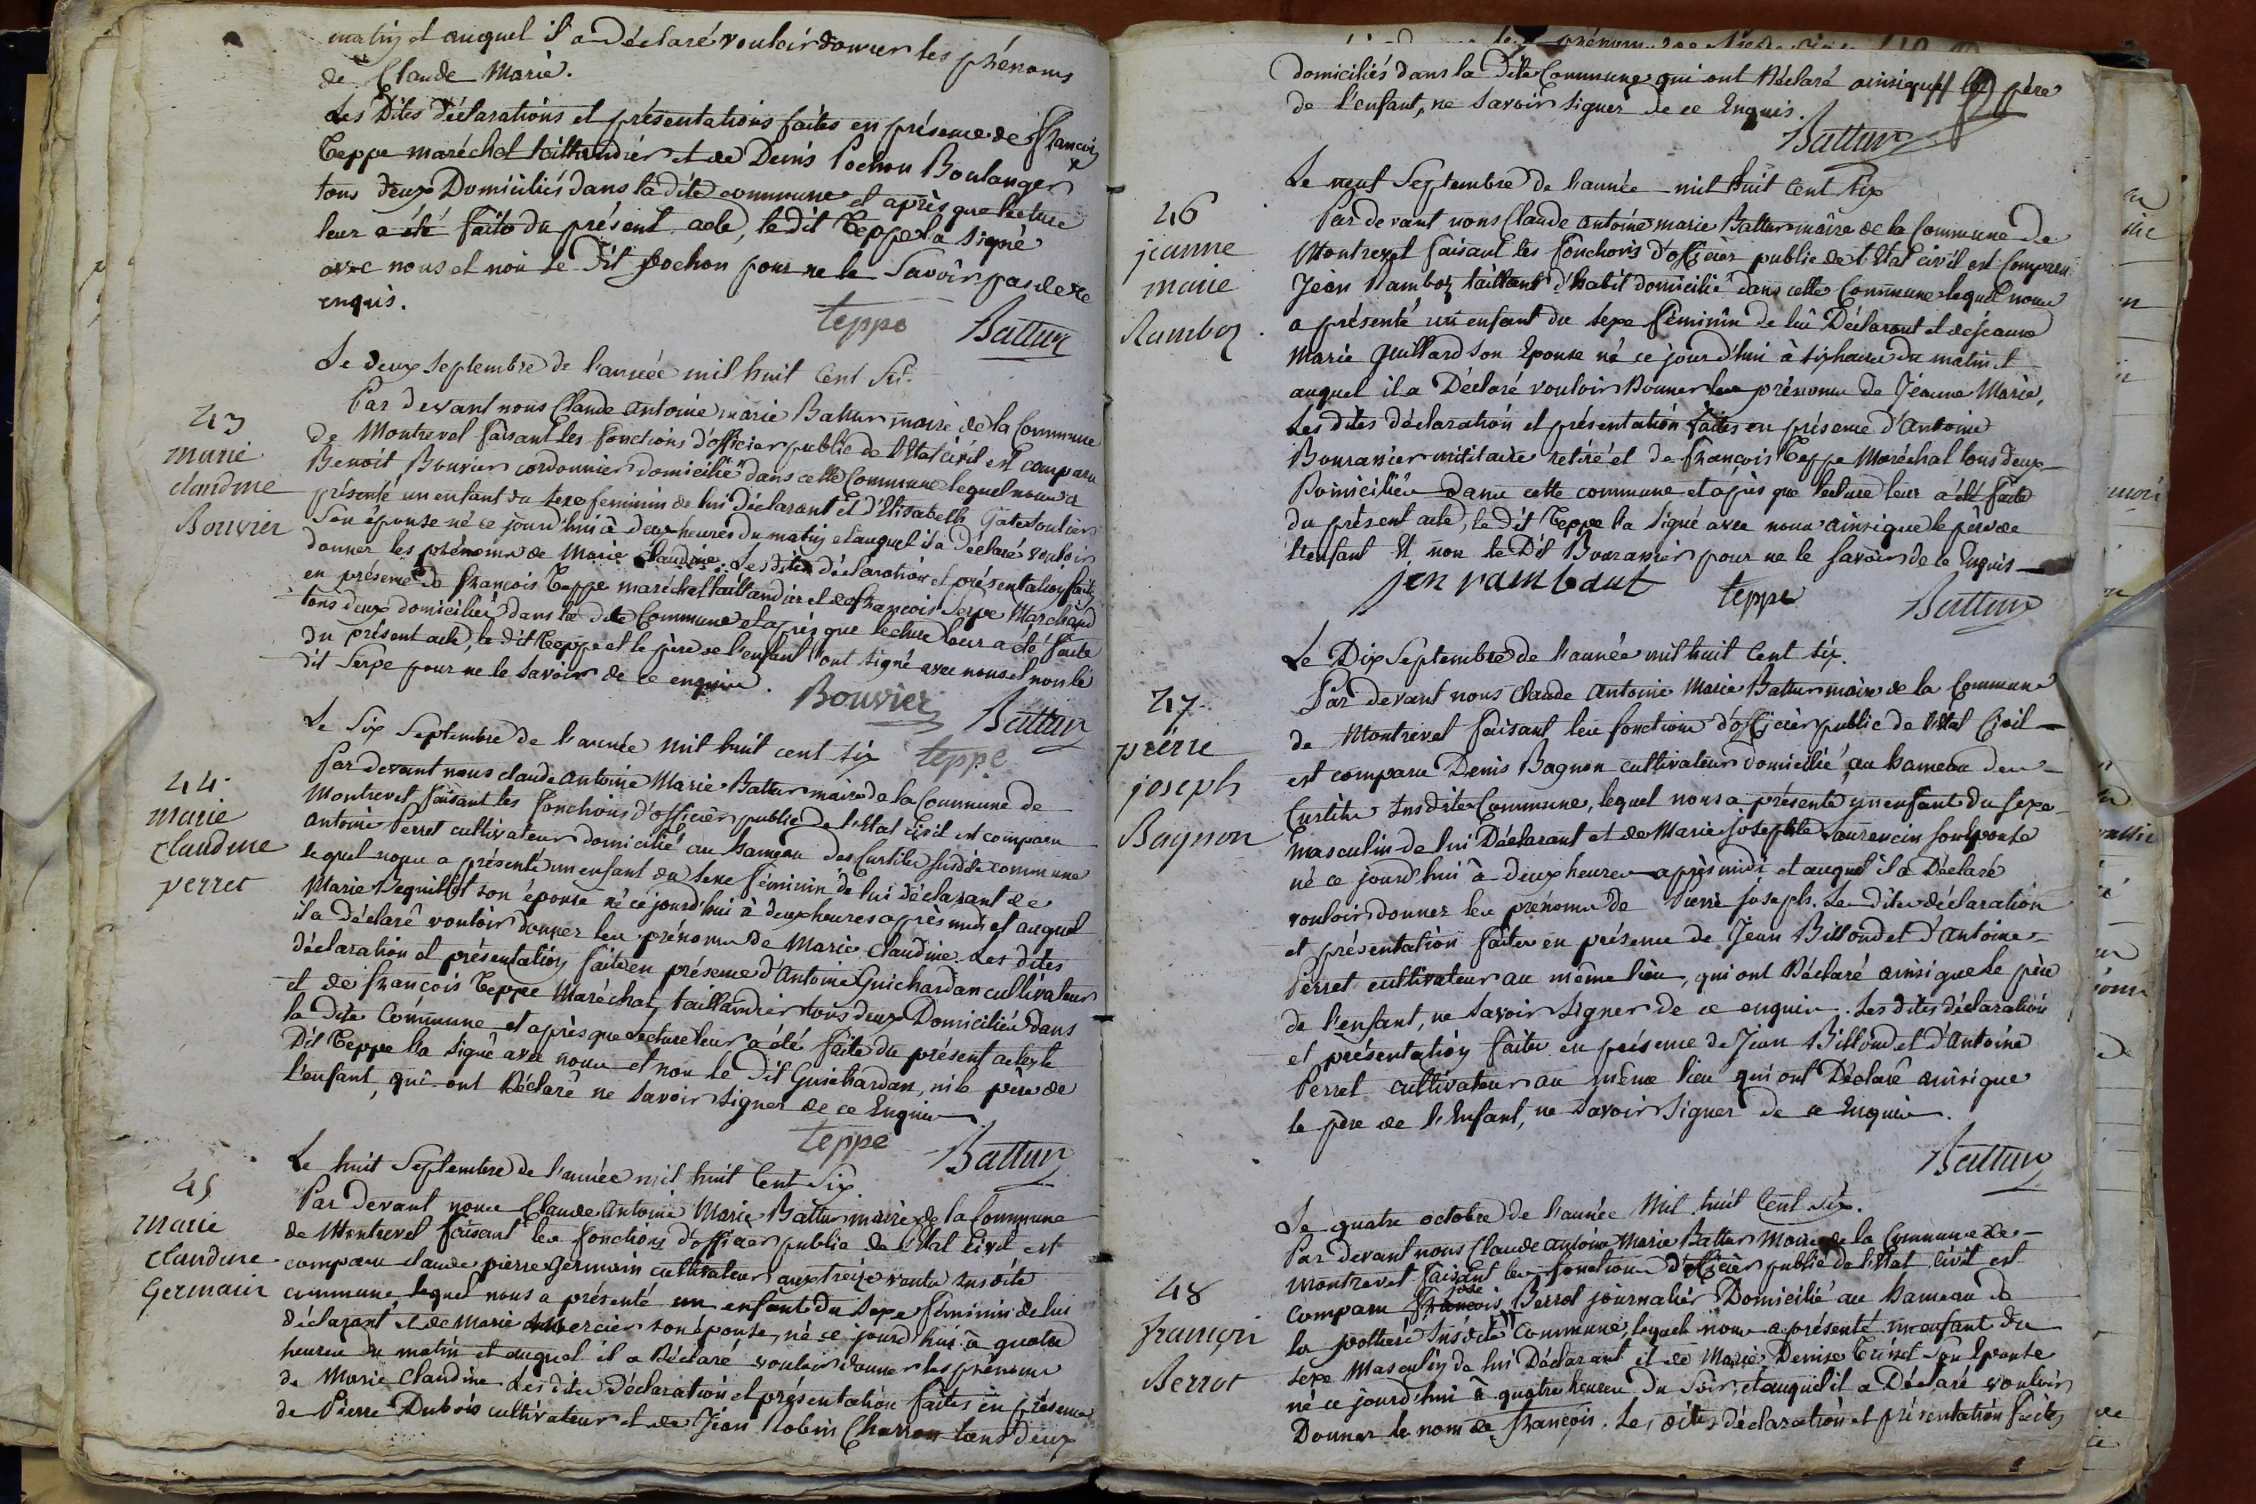 matin et auquel il a déclaré vouloir donner les prénoms
de Claude Marie.
Les dites déclarations et présentations faites en présence de François
Teppe maréchal taillandier et de Denis Pochon Boulanger
tous deux Domiciliés dans la dite commune et après que lecture
leur a été faite du présent acte, le dit Teppe l'a signé
avec nous et non le dit Pochon pour ne le savoir pas de ce
enquis.
teppe Battur
Le deux septembre de l'année mil huit Cent Six.
43
marie
claudine
Bouvier
Par devant nous Claude antoine marie Battur maire de la Commune
de Montrevel faisant les fonctions d'officier public de l'Etat civil est comparu
Benoit Bouvier cordonnier domicilié dans cette Commune lequel nous a
présenté un enfant du sexe feminin de lui déclarant et d'Elisabeth
Son épouse né ce jourd'hui à deux heures du matin et auquel il a déclaré vouloir
donner les prénoms de Marie Claudine. Les dites déclaration et présentation faites
en présence de françois Teppe maréchal taillandier et de françois Serpe Marchand
tous deux domiciliés dans la dite Commune et après que lecture leur a été faite
du présent acte, le dit Teppe et le père de l'enfant l'ont signé avec nous et non le
dit Serpe pour ne le savoir de ce enquis.
Bouvier Battur
teppe
Le Six Septembre de l'année mil huit cent six
44
marie
claudine
perret
Par devant nous claude antoine Marie Battur maire de la Commune de
Montrevel faisant les fonctions d'officier public de l'Etat Civil est comparu
antoine Perret cultivateur domicilié au hameau des Curtils susdite commune
lequel nous a présenté un enfant du sexe féminin de lui déclarant de
Marie son épouse né ce jourd'hui à deux heures après midi et auquel
il a déclaré vouloir donner les prénoms de Marie Claudine. Les dites
déclaration et présentation faites en présence d'Antoine Guichardan cultivateur
et de françois Teppe Maréchal taillandier tous deux Domiciliés dans
la dite Commune et après que lecture leur a été faite du présent acte, le
Dit Teppe l'a signé avec nous et non le dit Guichardan, ni le père de
l'enfant, qui ont déclaré ne savoir signer de ce Enquis
teppe Battur
Le huit Septembre de l'année mil huit Cent Six
45
marie
claudine
Germain
Par devant nous Claude Antoine Marie Battur maire de la Commune
de Montrevel faisant les fonctions d'officier public de l'Etat Civil est
comparu claude pierre Germain cultivateur aux treize vents susdite
commune, lequel nous a présenté un enfant du sexe féminin de lui
déclarant et de Marie Mercier son épouse, né ce jourd'hui à quatre
heures du matin et auquel il a déclaré vouloir donner les prénoms
de Marie Claudine. Les dites déclaration et présentation faites en présence
de Pierre Dubois cultivateur et de Jean Robin Charron tous deux
domiciliés dans la dite Commune qui ont déclaré ainsi que le père
de l'enfant, ne savoir signer de ce Enquis.
Battur
Le neuf Septembre de l'année mil huit Cent Six
46
jeanne
marie
Ramboz
Par devant nous Claude antoine marie Battur maire de la Commune de
Montrevel faisant les fonctions d'officier public de l'Etat civil est comparu
Jean Ramboz taillant d'habit domicilié dans cette Commune lequel nous
a présenté un enfant du sexe féminin de lui Déclarant et de jeanne
marie Guillard son Epouse né ce jourd'hui à six heures du matin et
auquel il a Déclaré vouloir Donner les prénoms de Jeanne Marie,
Les dites déclaration et présentation faites en présence d'Antoine
militaire retiré et de françois Teppe Maréchal tous deux
Domiciliés dans cette commune et après que lecture leur a été faite
du présent acte, le dit Teppe l'a signé avec nous ainsi que le père de
l'enfant Et non le Dit pour ne le savoir de ce Enquis
jen rambaut teppe Battur
Le Dix Septembre de l'année mil huit Cent Six.
47
pierre
joseph
Bagnon
Par devant nous Claude antoine Marie Battur maire de la Commune
de Montrevel faisant les fonctions d'officier public de l'Etat Civil
est comparu Denis Bagnon cultivateur domicilié au hameau des
Curtils susdite Commune, lequel nous a présenté un enfant du sexe
masculin de lui Déclarant et de Marie josephte Laurencin son épouse
né ce jourd'hui à deux heures après midi et auquel il a Déclaré
vouloir donner les prénoms de Pierre joseph. Les dites déclaration
et présentation faites en présence de Jean Billoud et d'Antoine
Perret cultivateur au même lieu, qui ont Déclaré ainsi que le père
de l'enfant, ne savoir signer de ce enquis. Les dites déclaration
et présentation faites en présence de Jean Billoud et d'Antoine
Perret cultivateur au même lieu qui ont Déclaré ainsi que
le père de l'Enfant, ne savoir signer de ce Enquis.
Battur
Le quatre octobre de l'année Mil huit Cent Six.
48
françois
Berrot
Par devant nous Claude antoine Marie Battur Maire de la Commune de
Montrevel faisant les fonctions d'officier public de l'Etat Civil est
comparu françois Berrot journalier Domicilié au hameau de
la susdite Commune, lequel nous a présenté un enfant du
sexe Masculin de lui Déclarant et de Marie Denise son Epouse
né ce jourd'hui à quatre heures du Soir, et auquel il a Déclaré vouloir
Donner le nom de françois. Les dites déclaration et présentation faites